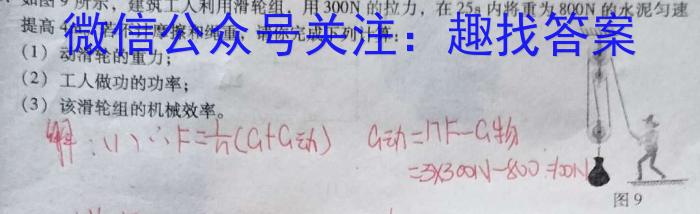 如图9所示，建筑工人利用滑轮组，用300N的拉力，在25s内将重为800N的水泥匀速
提高
微信公众号关注：趣找答案
（1）动滑轮的重力；
（2）工人做功的功率；
（3）该滑轮组的机械效率。
解：(1)∵F=1/n(G+G动) G动=nF-G物
=3×300N-800=100N
图9